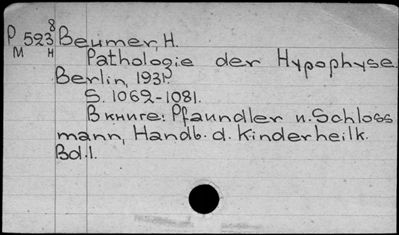 P 523⁸ Beumer, H.
M H
Pathologie der Hypophyse.
Berlin, 1931.
S. 1062-1081.
В книге: Pfaundler u. Schloss
mann, Handb. d. Kinderheilk.
Bd.1.